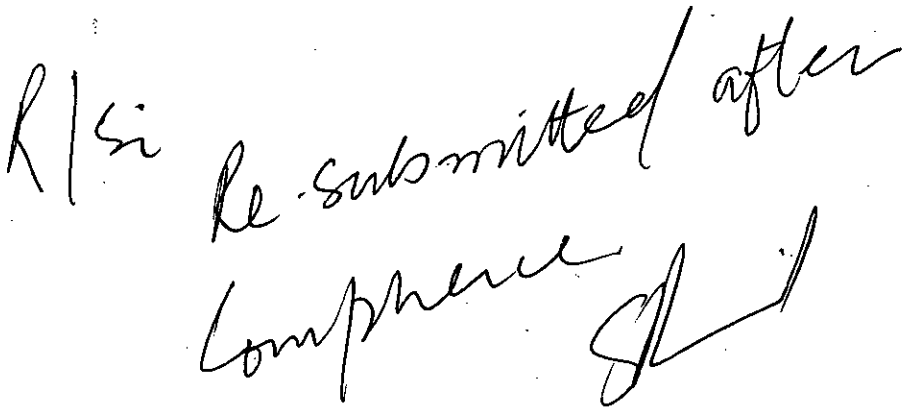 R/Sir
Re-submitted after
Complience